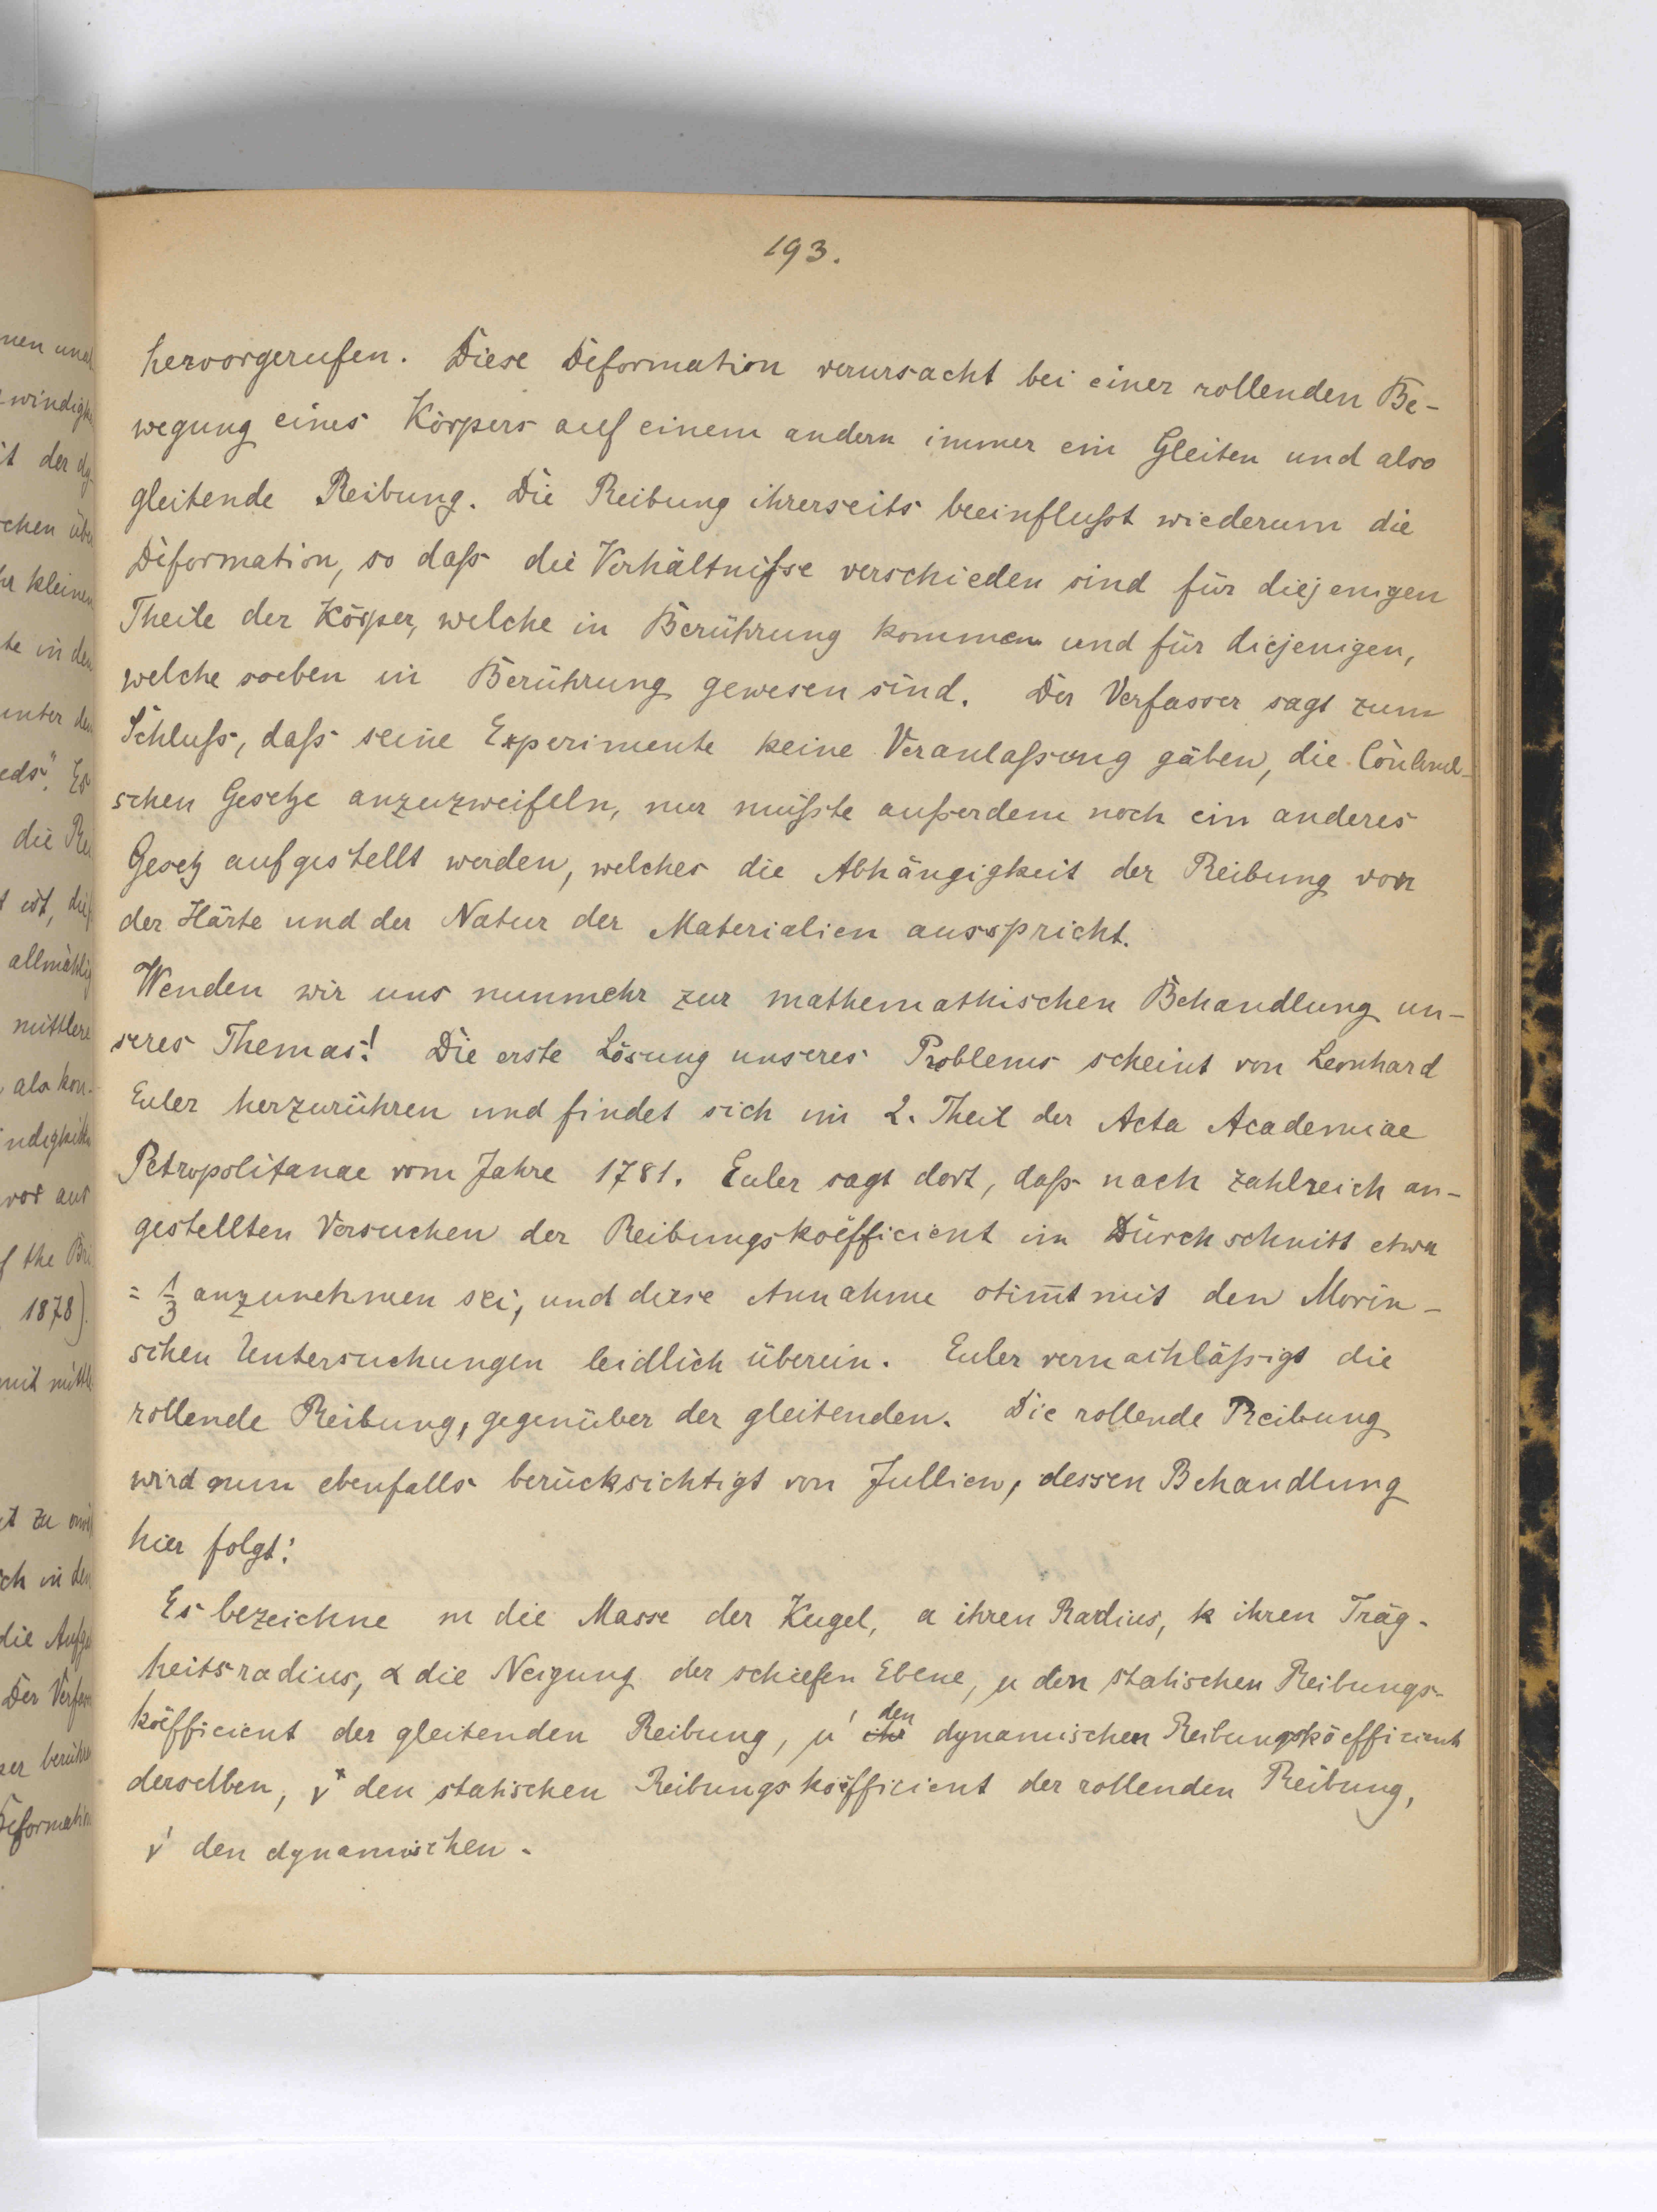 193.
hervorgerufen. Diese Deformation verursacht bei einer rollenden Be-
wegung eines Körpers auf einem andern immer ein Gleiten und also
gleitende Reibung. Die Reibung ihrerseits beeinflußt wiederum die
Deformation, so daß die Verhältniße verschieden sind für diejenigen
Theile der Körper, welche in Berührung kommen und für diejenigen,
welche soeben in Berührung gewesen sind. Der Verfasser sagt zum
Schluß, daß seine Experimente keine Veranlaßung gäben, die
schen Gesetze anzuzweifeln, nur müßte außerdem noch ein anderes
Gesetz aufgestellt werden, welches die Abhängigkeit der Reibung von
der Härte und der Natur der Materialien ausspricht.
Wenden wir uns nunmehr zur mathemathischen Behandlung un-
seres Themas! Die erste Lösung unseres Problems scheint von Leonhard
Euler herzurühren und findet sich im 2. Theil der Acta Academiae
Petropolitanae vom Jahre 1781. Euler sagt dort, daß nach zahlreich an-
gestellten Versuchen der Reibungskoëfficient im Durchschnitt etwa
= 1/3 anzunehmen sei, und diese Annahme stim̅t mit den Morin-
schen Untersuchungen leidlich überein. Euler vernachläßigt die
rollende Reibung, gegenüber der gleitenden. Die rollende Reibung
wird nun ebenfalls berücksichtigt von Jullien, dessen Behandlung
hier folgt:
Es bezeichne m die Masse der Kugel, a ihren Radius, k ihren Träg-
heitsradius, α die Neigung der schiefen Ebene, μ den statischen Reibungs-
koëfficient der gleitenden Reibung, μ' den dynamischen Reibungskoëfficient
derselben, ν den statischen Reibungskoëfficient der rollenden Reibung,
ν' den dynamischen.